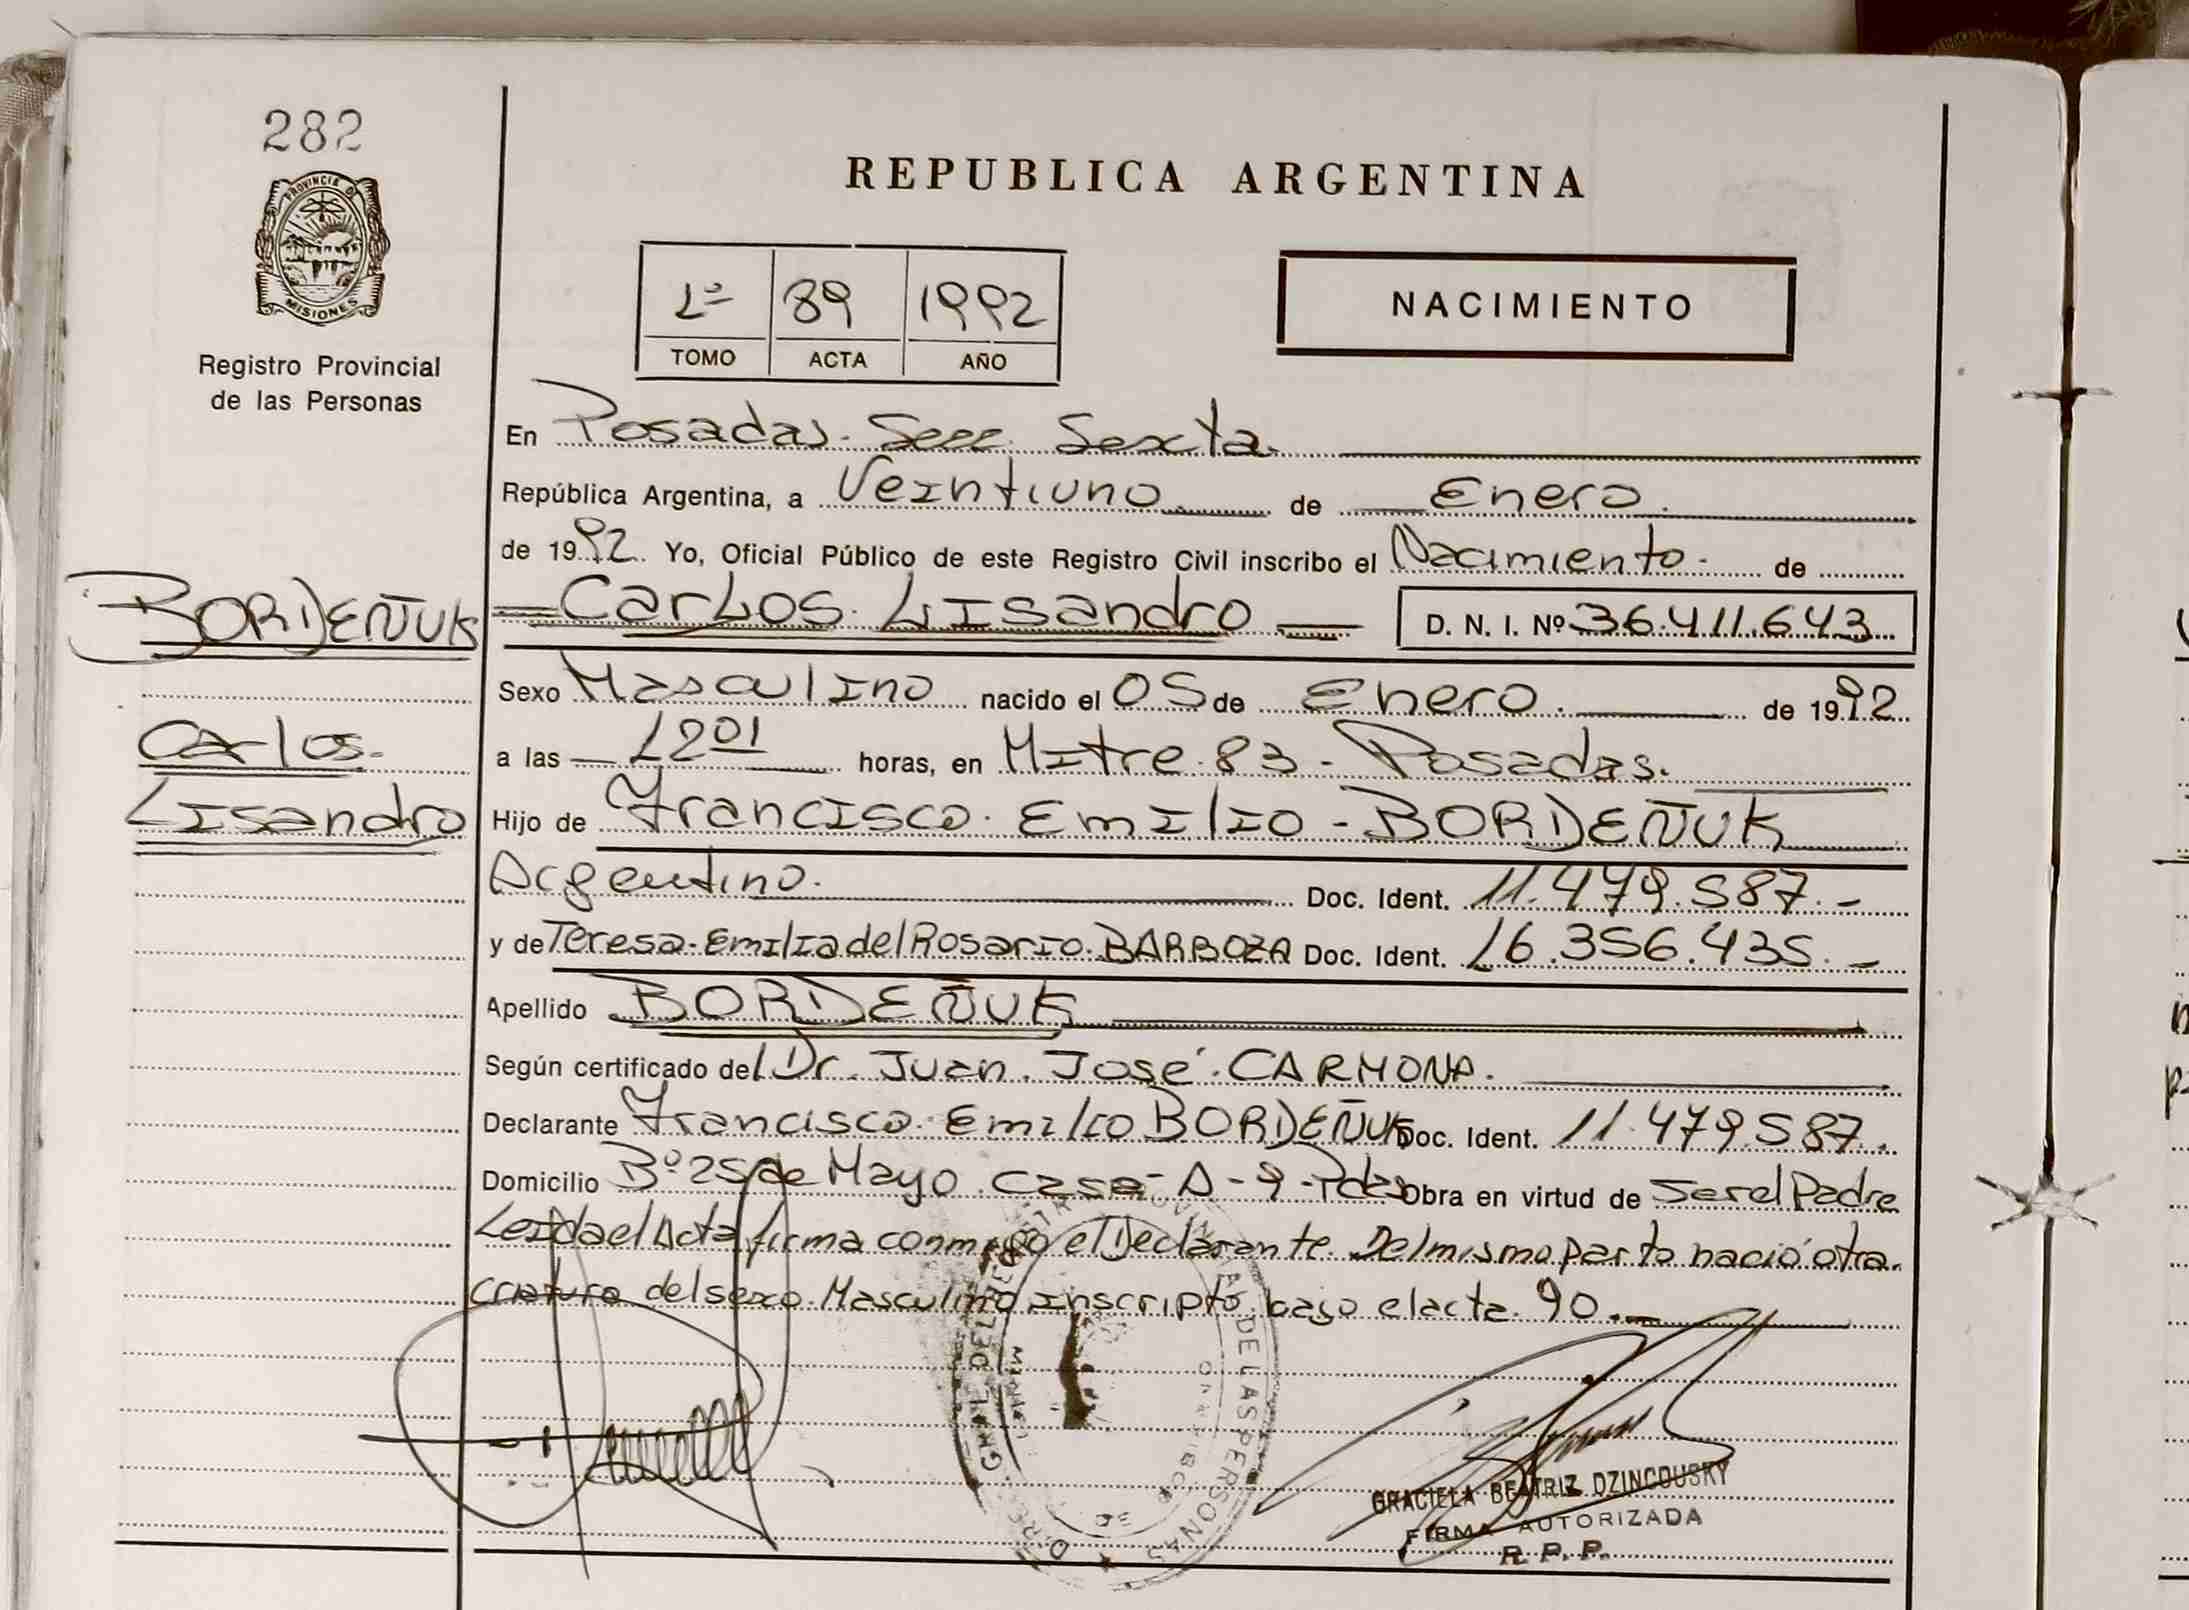 282
PROVINCIA DE
MISIONES
Registro Provincial
de las Personas
REPUBLICA ARGENTINA
1º 89 1992
TOMO ACTA AÑO
NACIMIENTO
En Posadas. Secc. Sexta.
República Argentina, a Veintiuno de Enero.
de 1992. Yo, Oficial Público de este Registro Civil inscribo el Nacimiento. de
BORDEÑUK
Carlos.
Lisandro
Carlos. Lisandro D. N. I. Nº 36.411.643
Sexo Masculino nacido el 05 de Enero. de 1992
a las 1201 horas, en Mitre. 83 - Posadas.
Hijo de Francisco. Emilio - BORDEÑUK
Argentino. Doc. Ident. 11.479.587.-
y de Teresa. Emilia del Rosario. BARBOZA Doc. Ident. 16.356.435.-
Apellido BORDEÑUK
Según certificado del Dr. Juan. José. CARMONA.
Declarante Francisco. Emilio BORDEÑUK Doc. Ident. 11.479.587.
Domicilio Bº 25 de Mayo. Casa - A - 9 - Pdas Obra en virtud de Ser el Padre
Leida el Acta firma conmigo el Declarante. Del mismo parto nació otra
criatura del sexo Masculino inscripto bajo el acta 90.
DE LAS PERSONAS
GRACIELA BEATRIZ DZINCOUSKY
FIRMA AUTORIZADA
R. P. P.